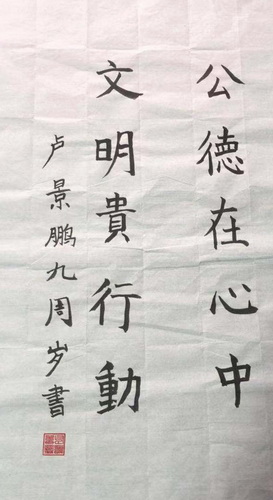 公德在心中
文明貴行動
卢景鹏九周岁書